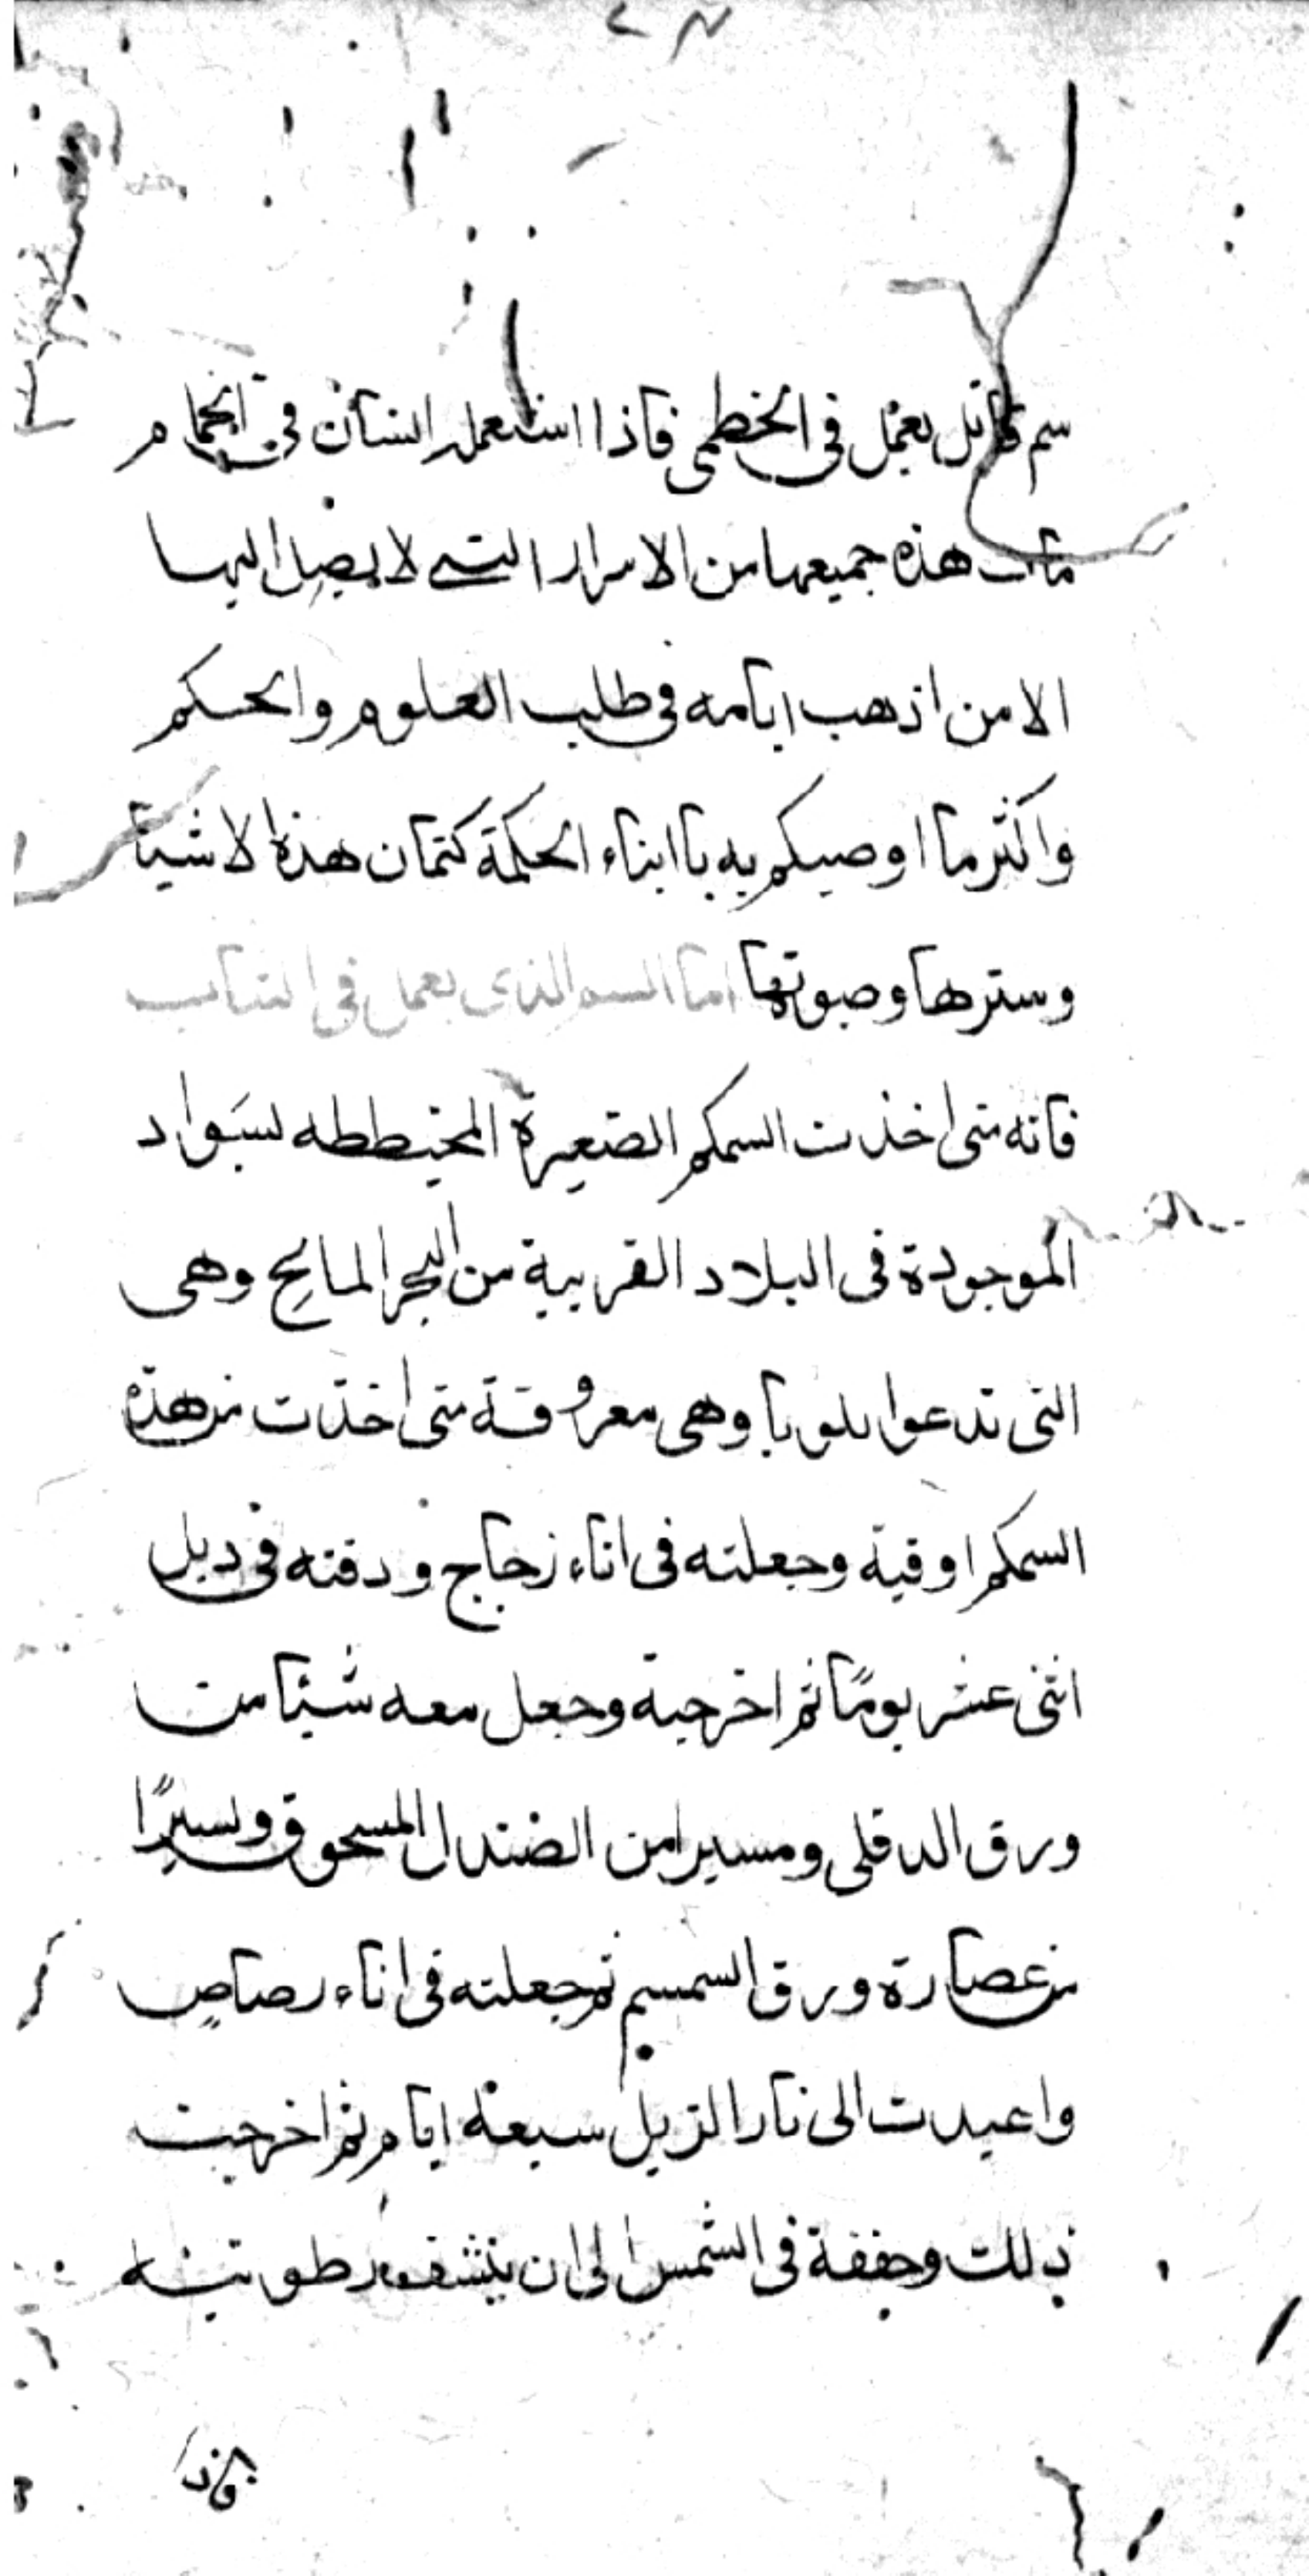 سم قاتل يعمل في الخطمي فاذا استعمله انسان في الحمام
مات هذه جميعها من الاسرار التي لا يصل اليها
الا من اذهب ايامه في طلب العلوم والحكم
واكثر ما اوصيكم به يا ابناء الحكمة كتمان هذه الاشيا
وسترها وصونها اما السم الذي يعمل في الثياب
فانه متى اخذت السمكه الصغيرة المخيططه بسَواد
الموجودة في البلاد القريبة من البحر المالح وهي
التي تدعوا بلويا وهي معروفة متى اخذت من هذه
السمكه اوقية وجعلته في اناء زجاج ودفنته في ديل
اثني عشر يومًا ثم اخرجته وجعل معه شيئا من
ورق الدفلى ومسيرا من الصندل المسحوق ويسيرًا
من عصارة ورق السمسم ثم جعلته في اناء رصاصٍ
واعيدت الى نار الزبل سبعة ايام ثم اخرجت
ذلك وجففة في الشمس الى ان ينشف رطوبته
فاذا